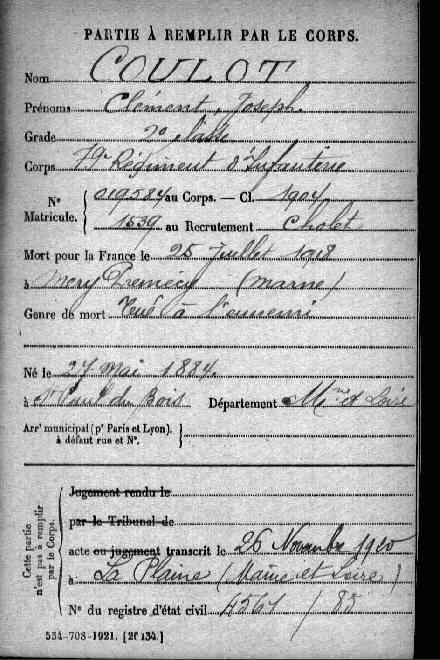 PARTIE À REMPLIR PAR LE CORPS.
Nom COULOT
Prénoms Clément, Joseph
Grade 2e classe
Corps 79e Régiment d'Infanterie
N° Matricule. { 019584 au Corps. — Cl. 1904
1539 au Recrutement Cholet
Mort pour la France le 25 Juillet 1918
à Mery Premecy (Marne)
Genre de mort Tué à l'ennemi
Né le 27 Mai 1884
à St Paul du Bois Département Mne et Loire
Arrt municipal (pr Paris et Lyon),
à défaut rue et N°. }
Cette partie n'est pas à remplir par le Corps. {
Jugement rendu le
par le Tribunal de
acte ou jugement transcrit le 26 Novembre 1920
à La Plaine (Maine et Loire)
N° du registre d'état civil 4561 / 85
534-708-1921. [26434.]